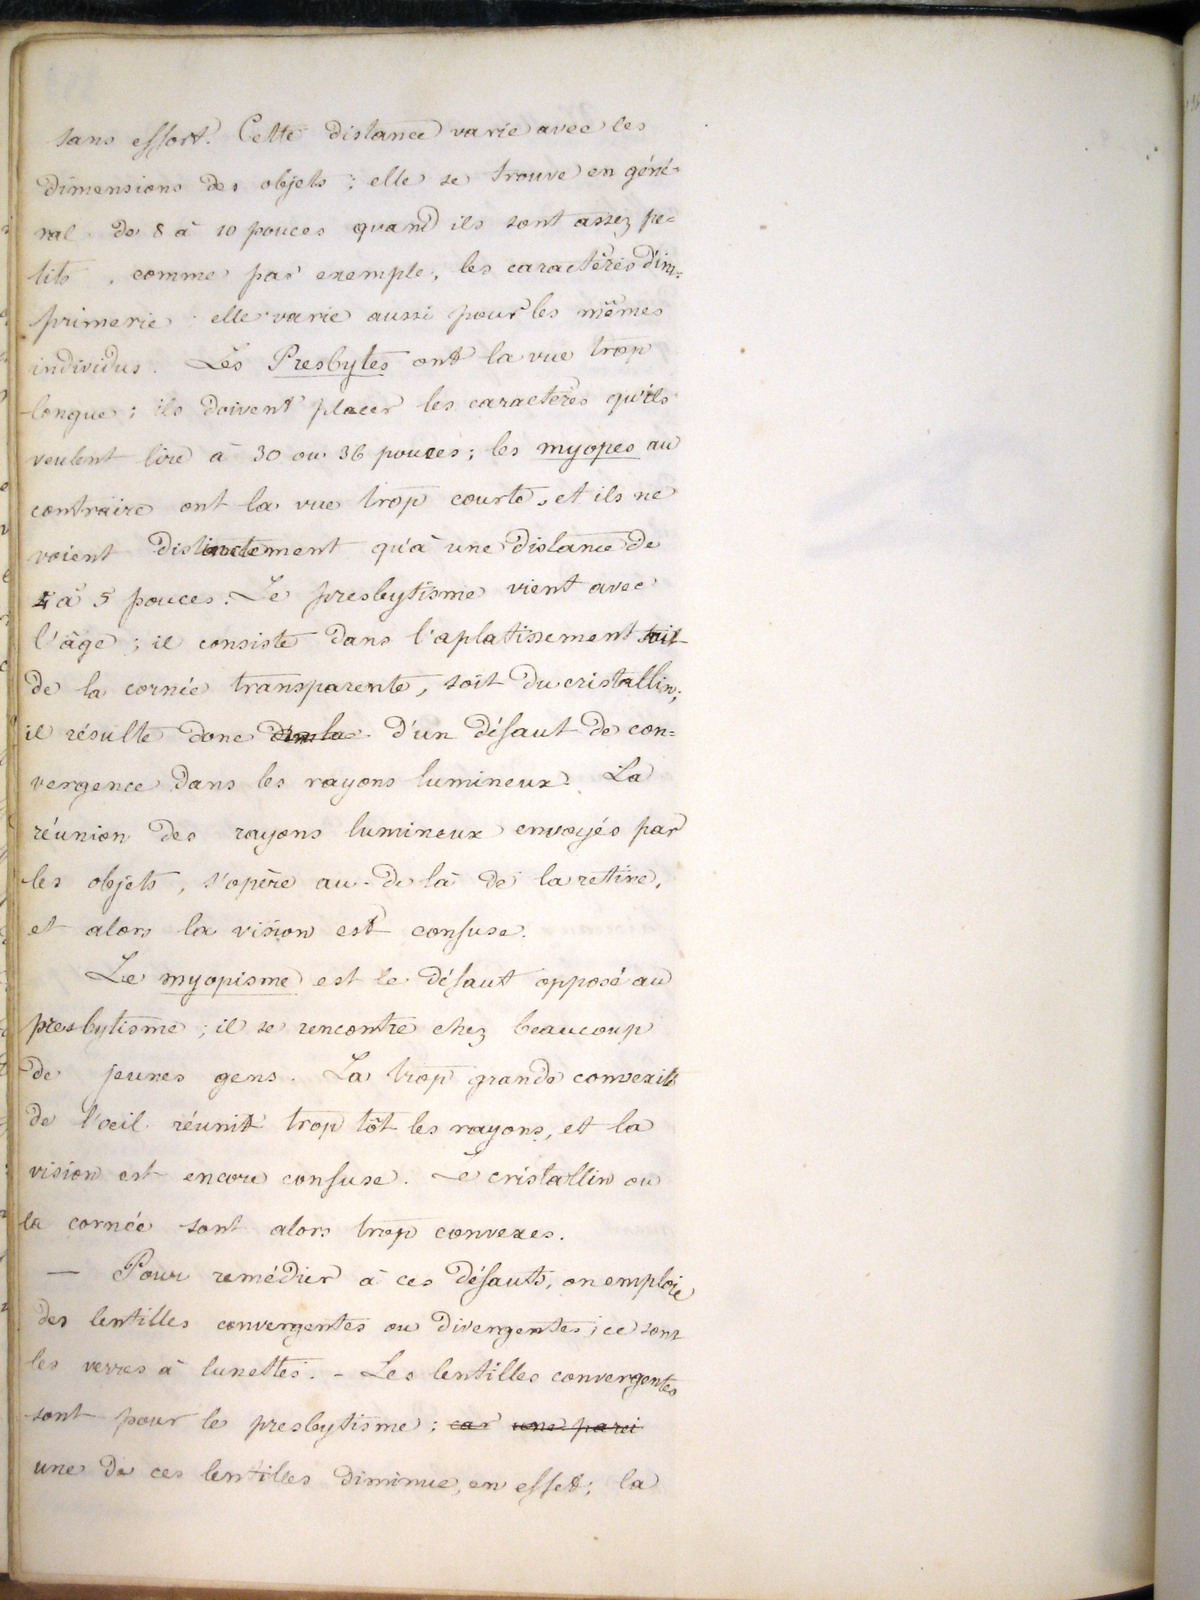 sans effort. Cette distance varie avec les
dimensions des objets : elle se trouve en géné=
ral de 8 à 10 pouces quand ils sont assez pe=
tits, comme par exemple, les caractères d'im=
primerie ; elle varie aussi pour les mêmes
individus. Les Presbytes ont la vue trop
longue ; ils doivent placer les caractères qu'ils
veulent lire à 30 ou 36 pouces ; les myopes au
contraire ont la vue trop courte, et ils ne
voient distinctement qu'à une distance de
4 à 5 pouces. Le presbytisme vient avec
l'âge ; il consiste dans l'aplatissement soit
de la cornée transparente, soit du cristallin ;
il résulte donc d'un défaut de con=
vergence dans les rayons lumineux. La
réunion des rayons lumineux envoyés par
les objets, s'opère au-delà de la retine,
et alors la vision est confuse.
Le myopisme est le défaut opposé au
presbytisme ; il se rencontre chez beaucoup
de jeunes gens. La trop grande convexité
de l'oeil réunit trop tôt les rayons, et la
vision est encore confuse. Le cristallin ou
la cornée sont alors trop convexes.
— Pour remédier à ces défauts, on emploie
des lentilles convergentes ou divergentes ; ce sont
les verres à lunettes. – Les lentilles convergentes
sont pour le presbytisme : car une parei
une de ces lentilles diminue, en effet, la